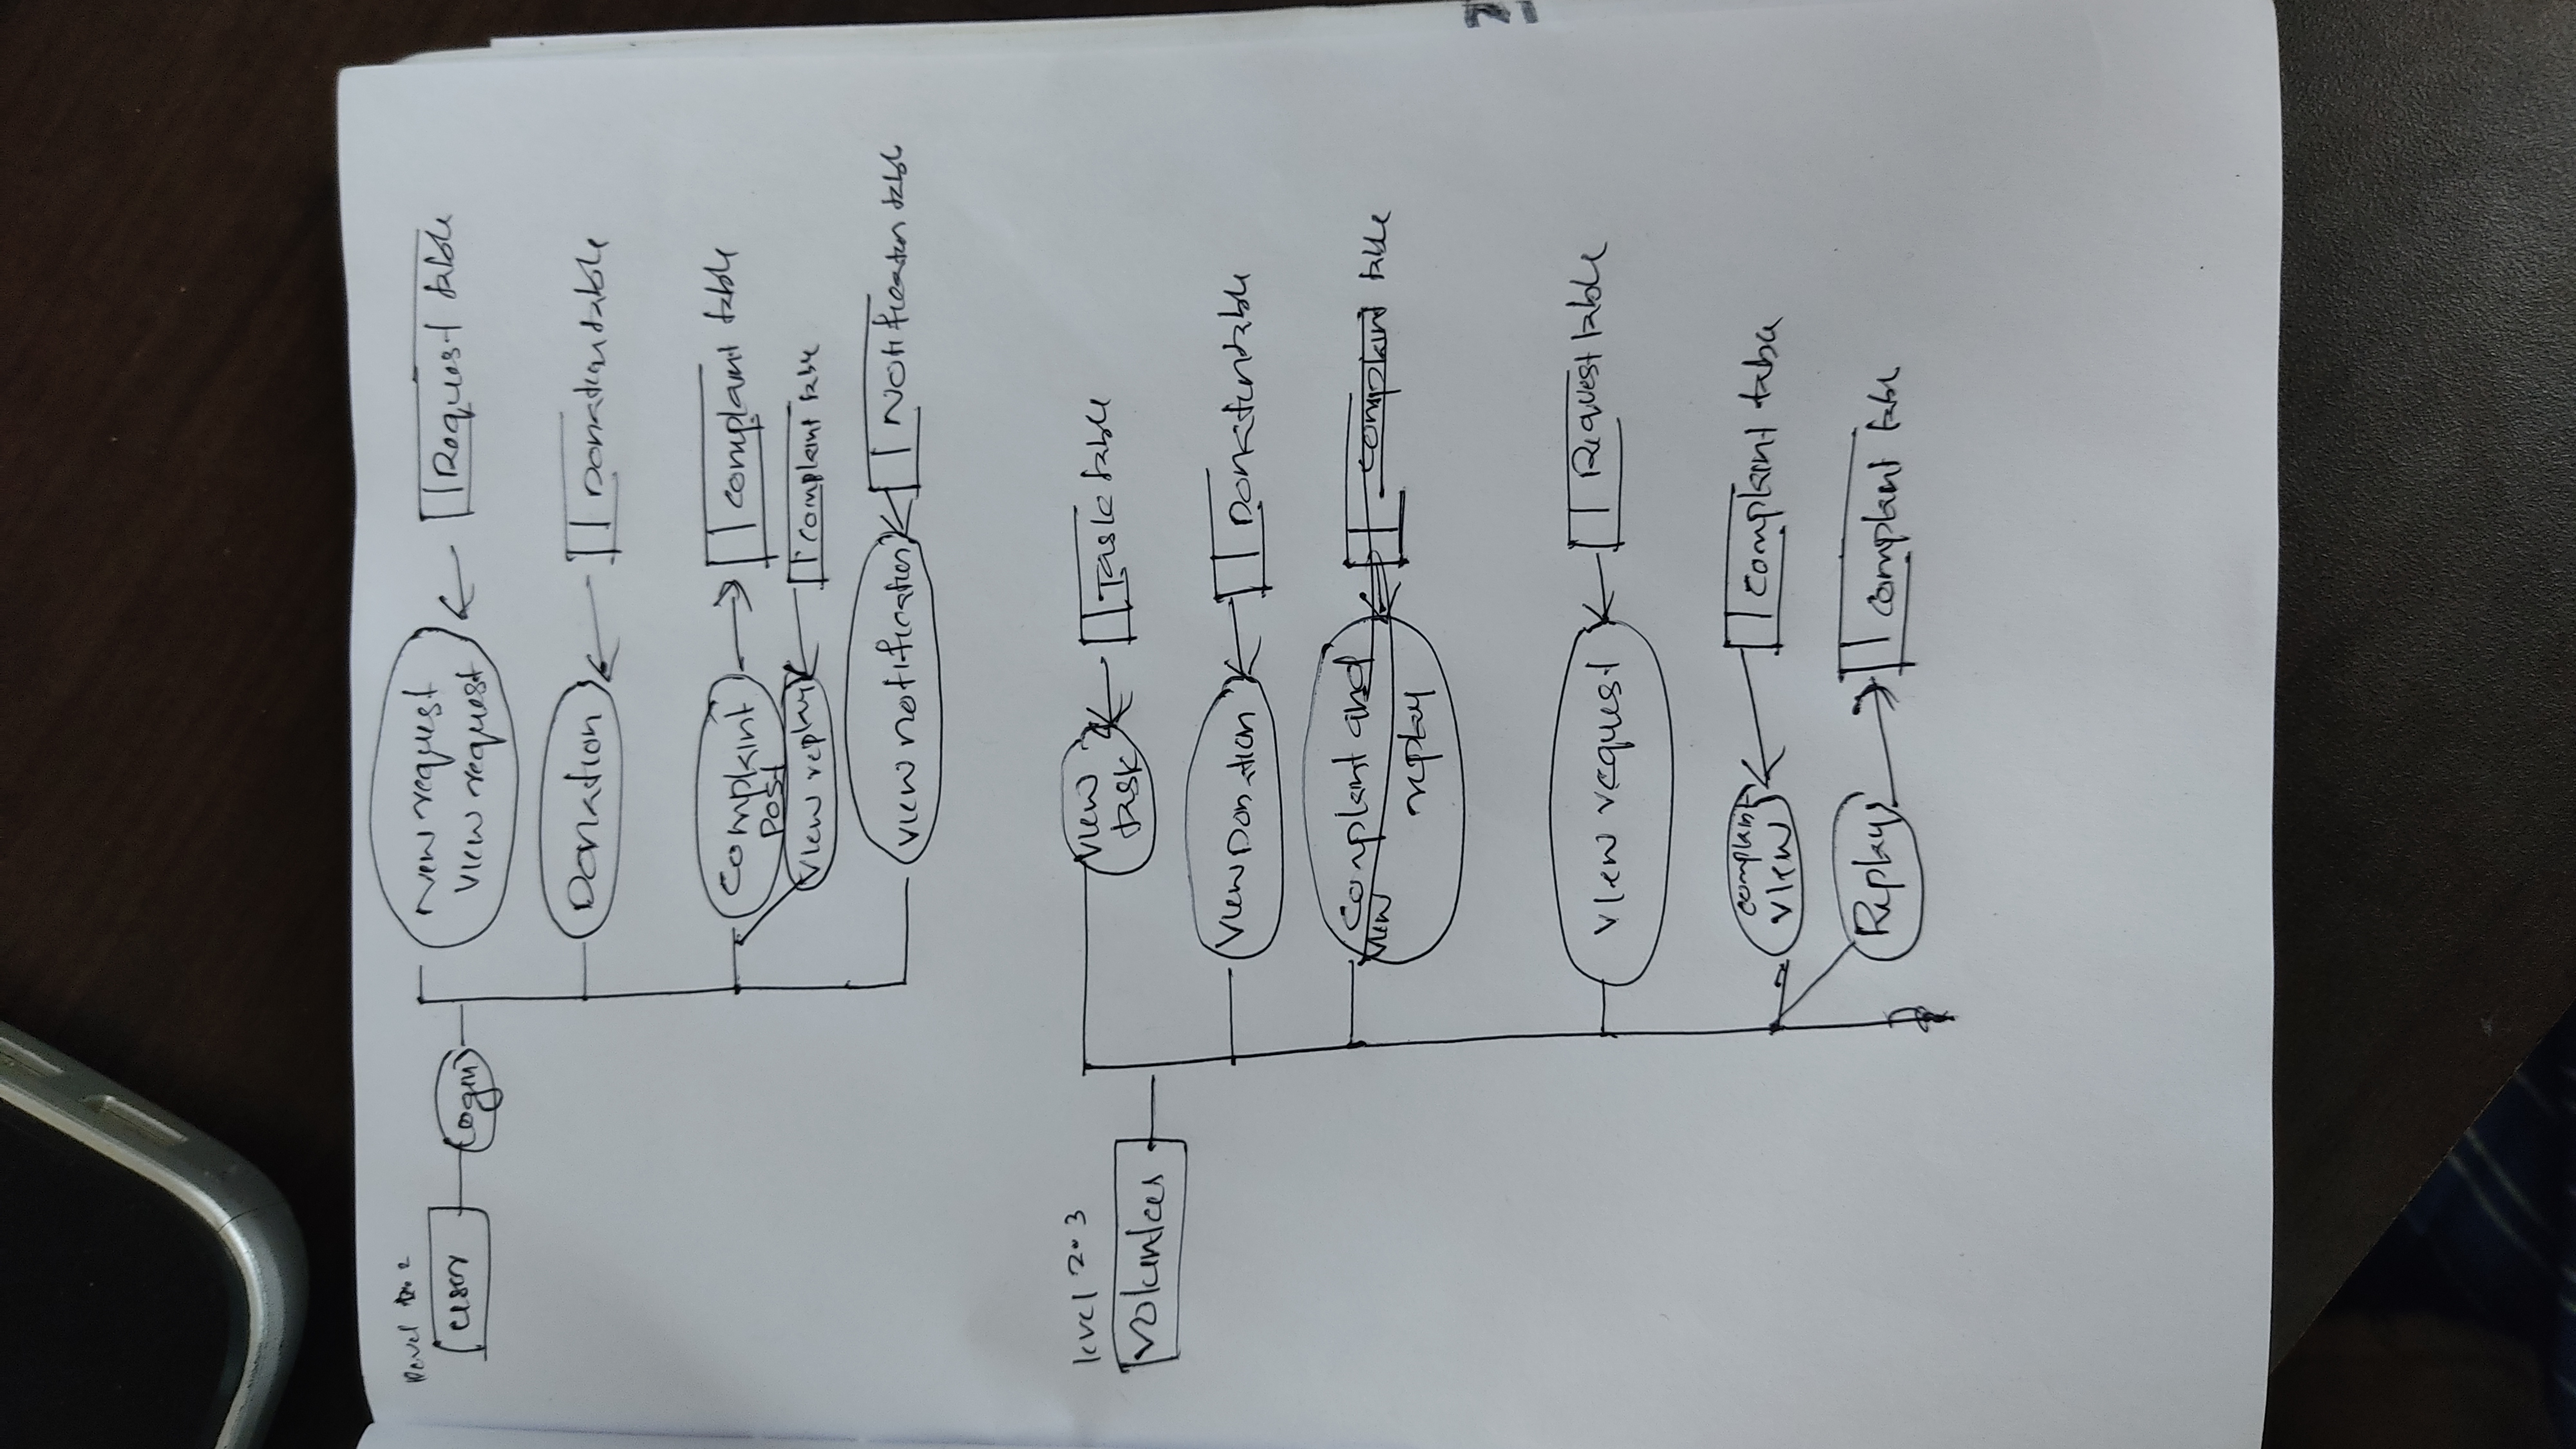 level 2
user
Login
New request
View request
Request table
Donation
Donation table
Complaint
Post
Complaint table
View replay
Complaint table
View notification
Notification table
level 2.3
Volenteer
View
task
Task table
View Donation
Donation table
Complaint and
View
replay
Complaint table
View request
Request table
complaint
View
Complaint table
Replay
Complaint table